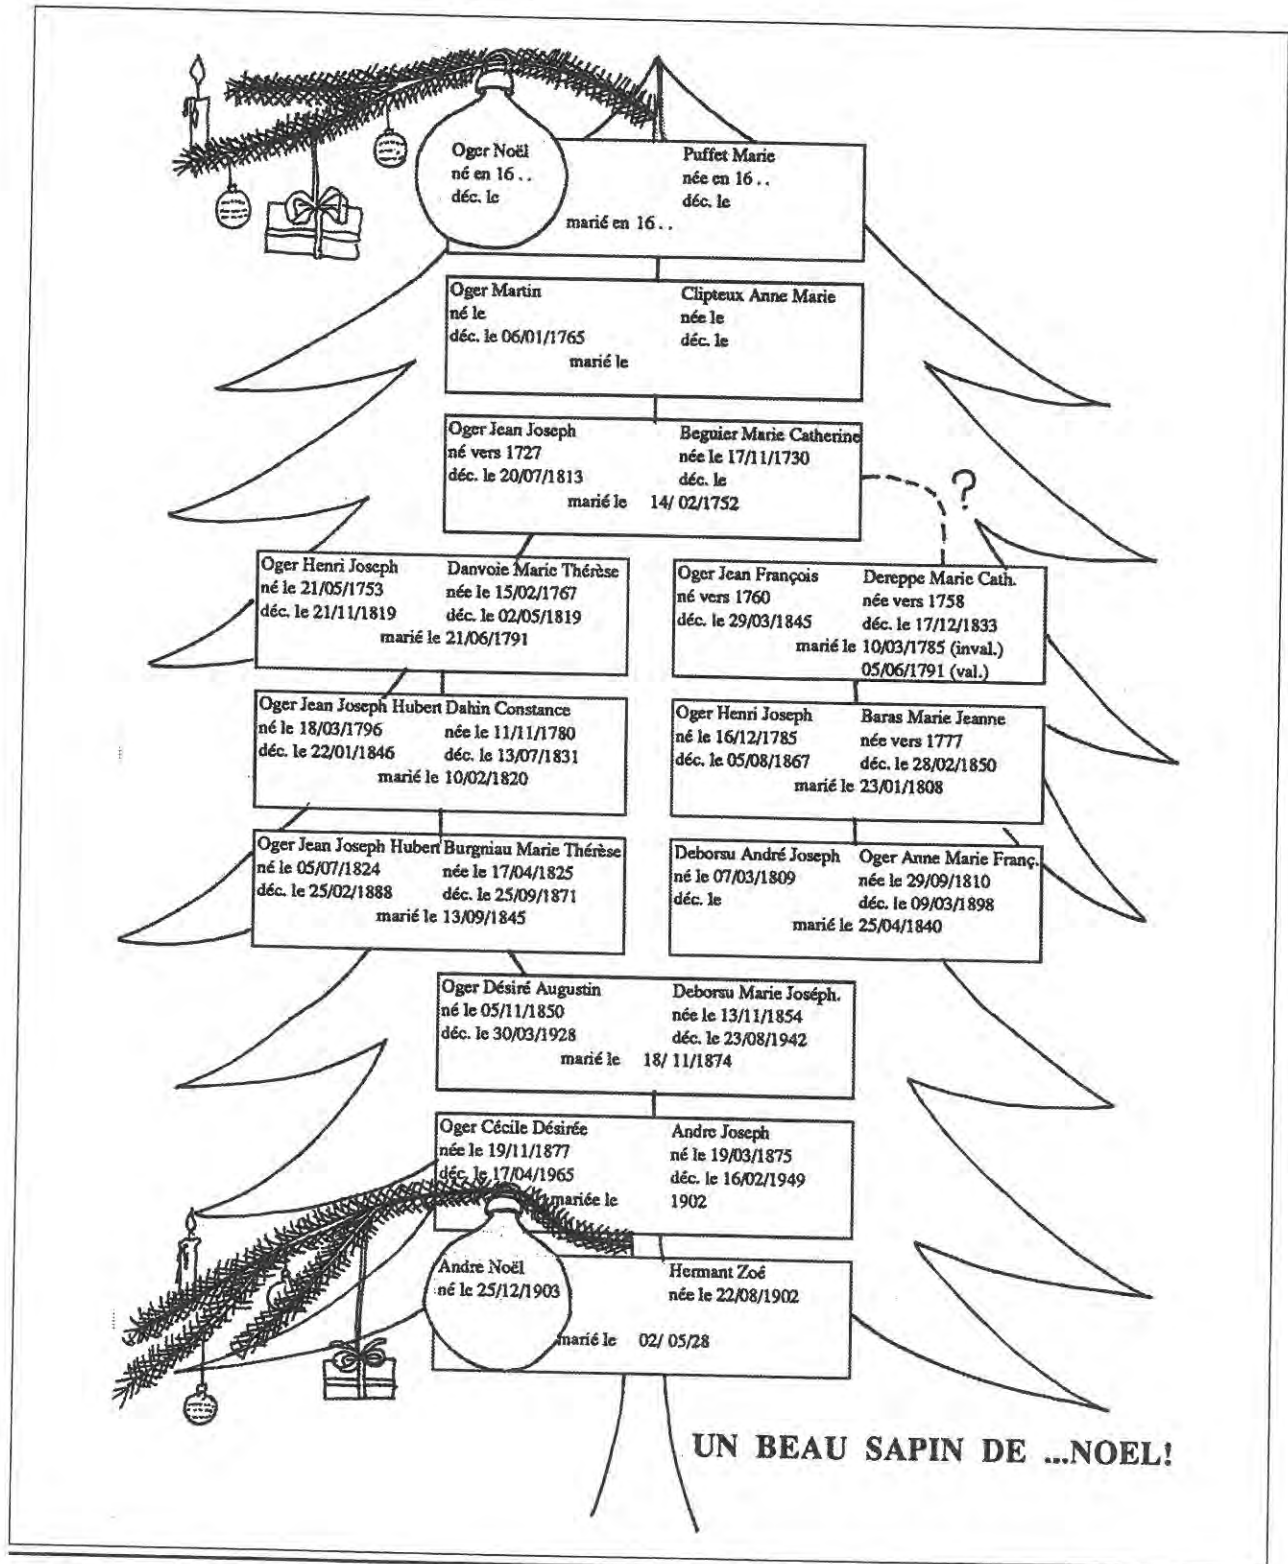 Oger Noël
né en 16 . .
déc. le
Puffet Marie
née en 16 . .
déc. le
marié en 16 . .
Oger Martin
né le
déc. le 06/01/1765
Clipteux Anne Marie
née le
déc. le
marié le
Oger Jean Joseph
né vers 1727
déc. le 20/07/1813
Beguier Marie Catherine
née le 17/11/1730
déc. le
marié le 14/ 02/1752
?
Oger Henri Joseph
né le 21/05/1753
déc. le 21/11/1819
Danvoie Marie Thérèse
née le 15/02/1767
déc. le 02/05/1819
marié le 21/06/1791
Oger Jean François
né vers 1760
déc. le 29/03/1845
Dereppe Marie Cath.
née vers 1758
déc. le 17/12/1833
marié le 10/03/1785 (inval.)
05/06/1791 (val.)
Oger Jean Joseph Hubert
né le 18/03/1796
déc. le 22/01/1846
Dahin Constance
née le 11/11/1780
déc. le 13/07/1831
marié le 10/02/1820
Oger Henri Joseph
né le 16/12/1785
déc. le 05/08/1867
Baras Marie Jeanne
née vers 1777
déc. le 28/02/1850
marié le 23/01/1808
Oger Jean Joseph Hubert
né le 05/07/1824
déc. le 25/02/1888
Burgniau Marie Thérèse
née le 17/04/1825
déc. le 25/09/1871
marié le 13/09/1845
Deborsu André Joseph
né le 07/03/1809
déc. le
Oger Anne Marie Franç.
née le 29/09/1810
déc. le 09/03/1898
marié le 25/04/1840
Oger Désiré Augustin
né le 05/11/1850
déc. le 30/03/1928
Deborsu Marie Joséph.
née le 13/11/1854
déc. le 23/08/1942
marié le 18/ 11/1874
Oger Cécile Désirée
née le 19/11/1877
déc. le 17/04/1965
Andre Joseph
né le 19/03/1875
déc. le 16/02/1949
mariée le 1902
Andre Noël
né le 25/12/1903
Hermant Zoé
née le 22/08/1902
marié le 02/ 05/28
UN BEAU SAPIN DE ...NOEL!